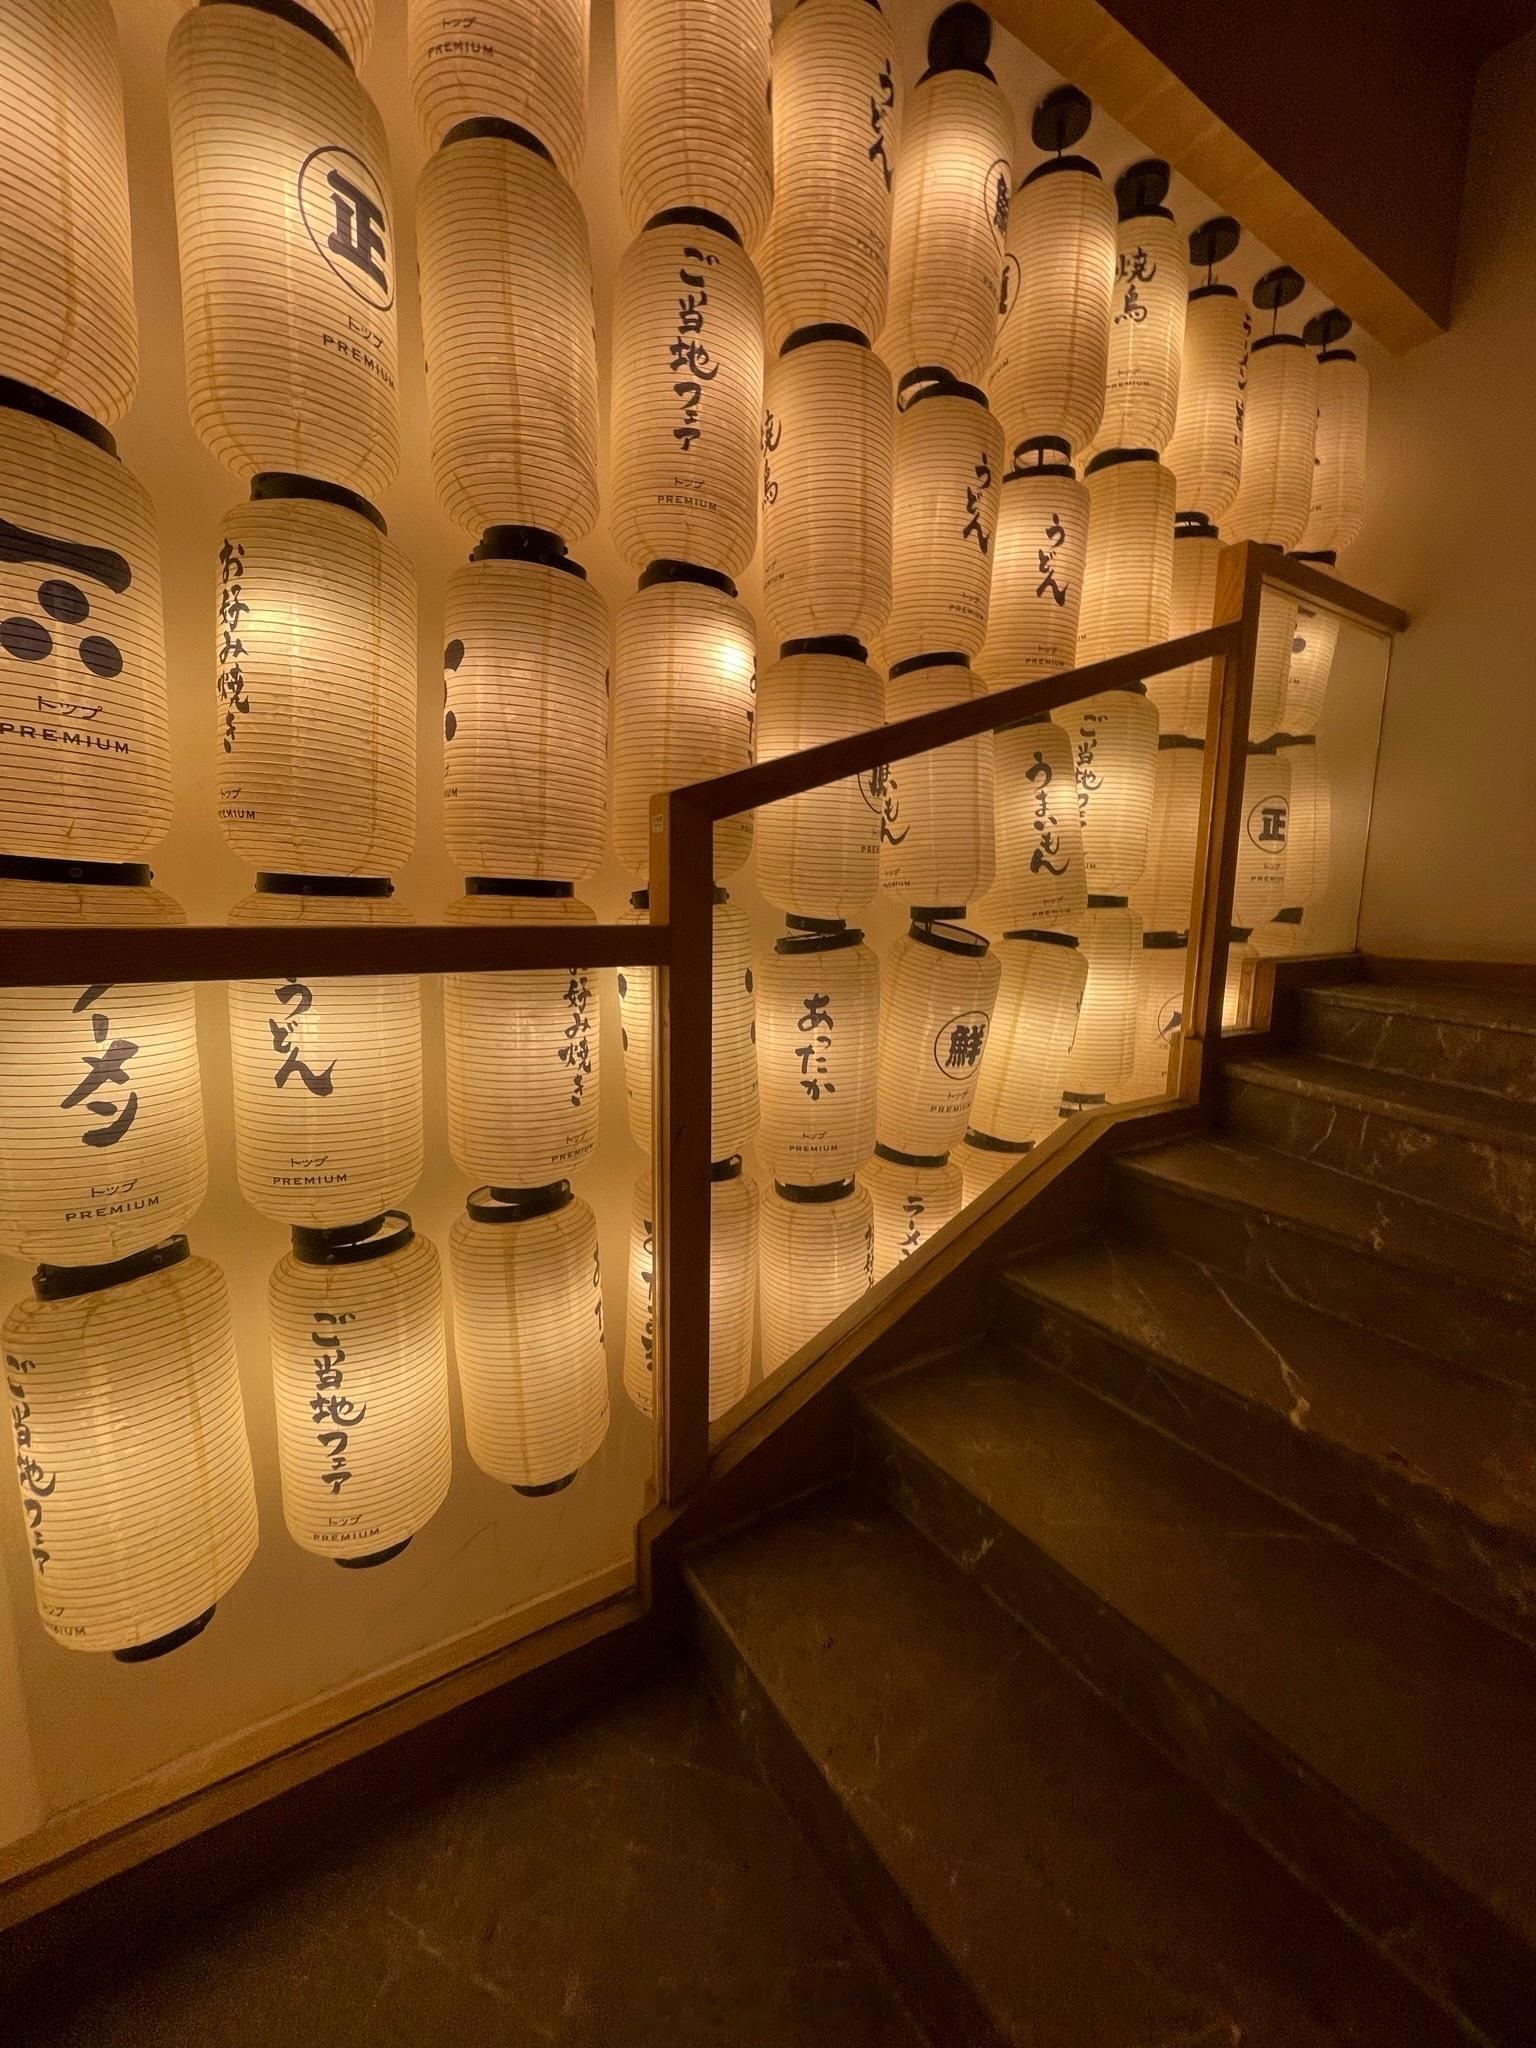 トップ
PREMIUM
うどん
正
トップ
PREMIUM
ご当地フェア
トップ
PREMIUM
焼鳥
PREMIUM
焼鳥
うどん
トップ
PREMIUM
うどん
トップ
PREMIUM
トップ
PREMIUM
お好み焼き
トップ
PREMIUM
うまいもん
トップ
PREMIUM
ご当地フ
正
トップ
PREMIUM
もん
PREMIUM
ーメン
トップ
PREMIUM
うどん
トップ
PREMIUM
好み焼き
トップ
PREMIUM
あったか
トップ
PREMIUM
鮮
トップ
PREMIUM
ラーメン
ご当地フェア
トップ
ご当地フェア
トップ
PREMIUM